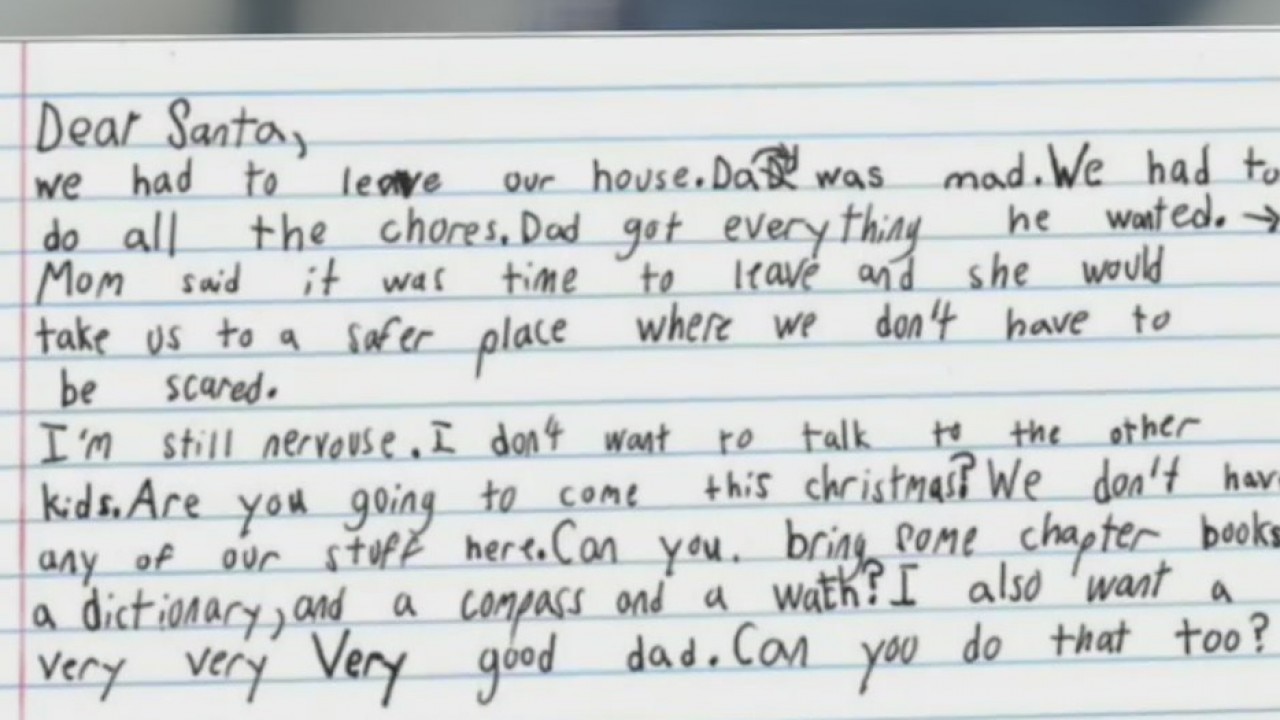 Dear Santa,
we had to leave our house.Dad was mad.We had to
do all the chores.Dad got everything he wanted.→
Mom said it was time to leave and she would
take us to a safer place where we don't have to
be scared.
I'm still nervouse.I don't want to talk to the other
kids.Are you going to come this christmas?We don't hav
any of our stuff here.Can you. bring some chapter books
a dictionary,and a compass and a wath?I also want a
very very Very good dad.Can you do that too?